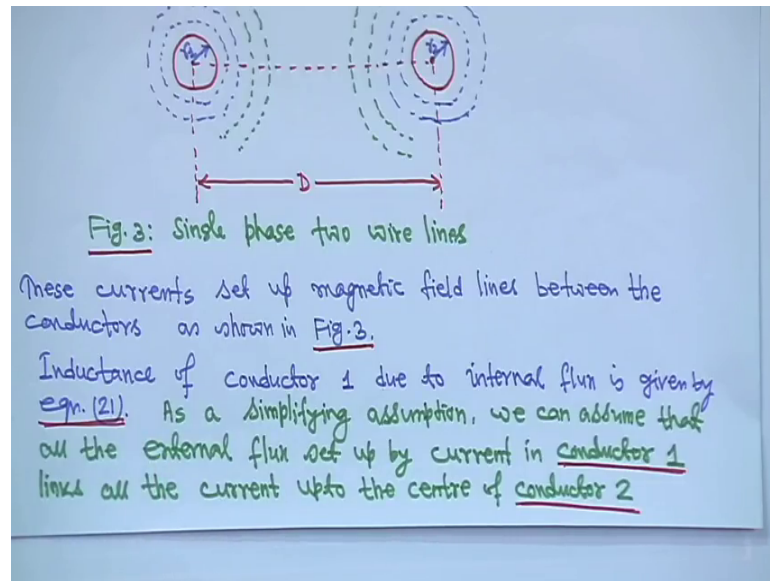 r₁ r₂
D
Fig. 3: Single phase two wire lines
These currents set up magnetic field lines between the
conductors as shown in Fig. 3.
Inductance of conductor 1 due to internal flux is given by
eqn. (21). As a simplifying assumption, we can assume that
all the external flux set up by current in conductor 1
links all the current upto the centre of conductor 2